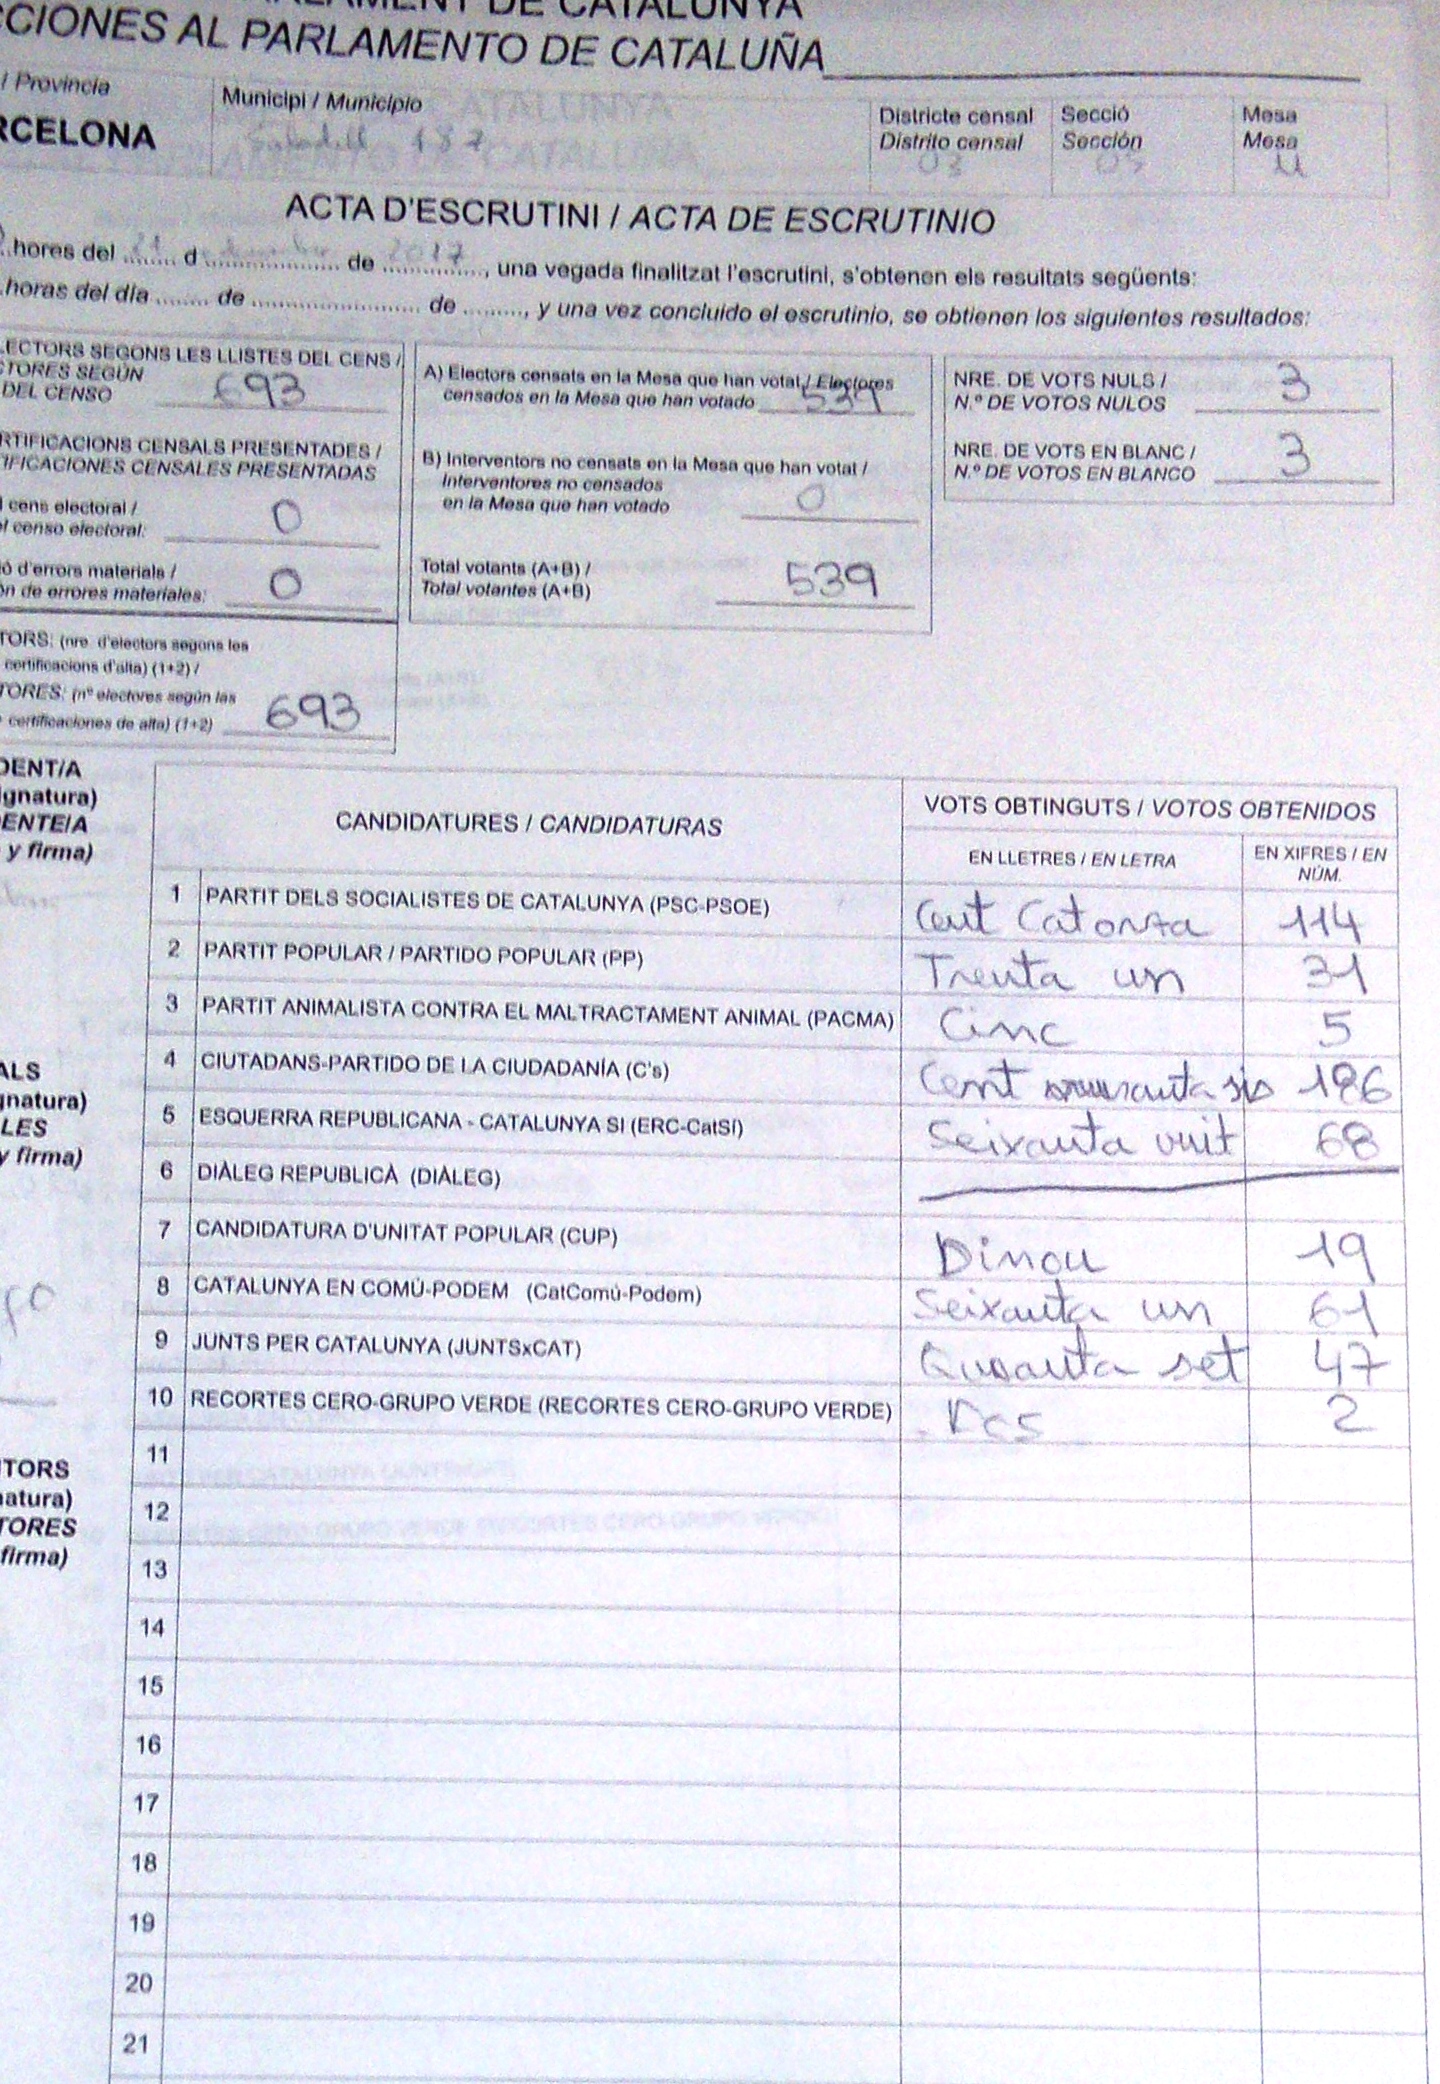 PARLAMENT DE CATALUNYA
CCIONES AL PARLAMENTO DE CATALUÑA
/ Provincia
RCELONA
Municipi / Municipio
Sabadell 187
Districte censal
Distrito censal
03
Secció
Sección
05
Mesa
Mesa
U
ACTA D'ESCRUTINI / ACTA DE ESCRUTINIO
hores del 21 d desembre de 2017, una vegada finalitzat l'escrutini, s'obtenen els resultats següents:
horas del día ........ de ........................ de ........., y una vez concluido el escrutinio, se obtienen los siguientes resultados:
LECTORS SEGONS LES LLISTES DEL CENS /
CTORES SEGÚN
DEL CENSO 693
RTIFICACIONS CENSALS PRESENTADES /
IFICACIONES CENSALES PRESENTADAS
l cens electoral /
el censo electoral: 0
ó d'errors materials /
ón de errores materiales: 0
TORS: (nre. d'electors segons les
certificacions d'alta) (1+2) /
TORES: (nº electores según las
certificaciones de alta) (1+2) 693
A) Electors censats en la Mesa que han votat / Electores
censados en la Mesa que han votado 539
B) Interventors no censats en la Mesa que han votat /
Interventores no censados
en la Mesa que han votado 0
Total votants (A+B) /
Total votantes (A+B) 539
NRE. DE VOTS NULS /
N.º DE VOTOS NULOS 3
NRE. DE VOTS EN BLANC /
N.º DE VOTOS EN BLANCO 3
DENT/A
ignatura)
ENTE/A
y firma)
ALS
gnatura)
LES
y firma)
TORS
natura)
TORES
firma)
CANDIDATURES / CANDIDATURAS
VOTS OBTINGUTS / VOTOS OBTENIDOS
EN LLETRES / EN LETRA
EN XIFRES / EN
NÚM.
1 PARTIT DELS SOCIALISTES DE CATALUNYA (PSC-PSOE) Cent Catorza 114
2 PARTIT POPULAR / PARTIDO POPULAR (PP) Trenta un 31
3 PARTIT ANIMALISTA CONTRA EL MALTRACTAMENT ANIMAL (PACMA) Cinc 5
4 CIUTADANS-PARTIDO DE LA CIUDADANÍA (C's) Cent sis 186
5 ESQUERRA REPUBLICANA - CATALUNYA SI (ERC-CatSí) Seixanta vuit 68
6 DIÀLEG REPUBLICÀ (DIÀLEG)
7 CANDIDATURA D'UNITAT POPULAR (CUP) Dinou 19
8 CATALUNYA EN COMÚ-PODEM (CatComú-Podem) Seixanta un 61
9 JUNTS PER CATALUNYA (JUNTSxCAT) Quaranta set 47
10 RECORTES CERO-GRUPO VERDE (RECORTES CERO-GRUPO VERDE) Dos 2
11
12
13
14
15
16
17
18
19
20
21